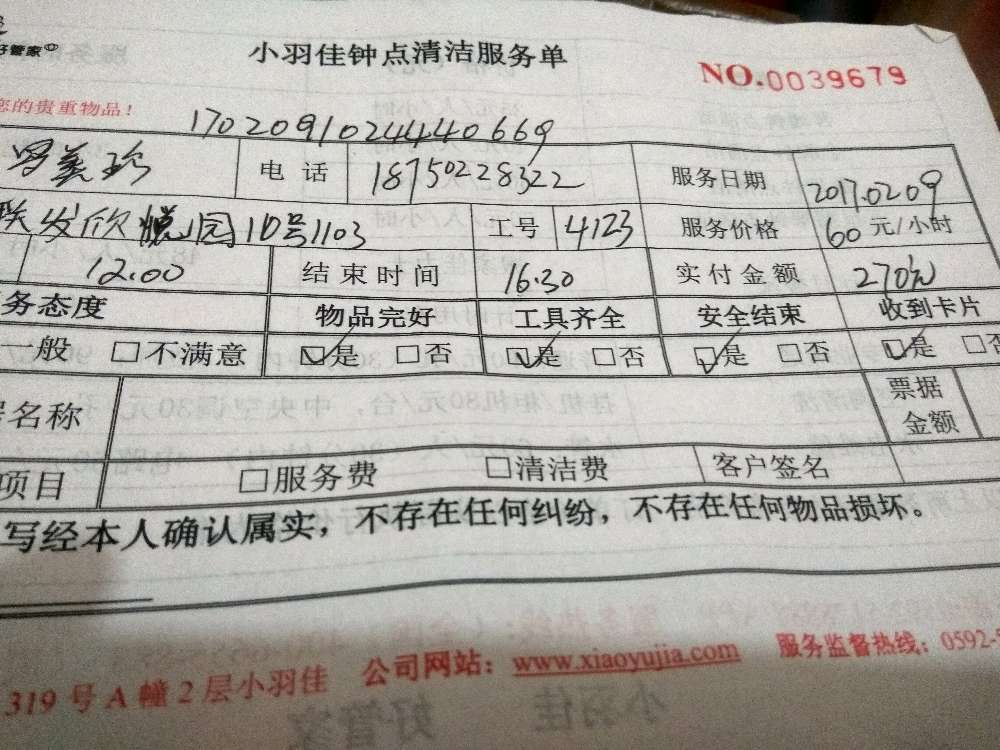 好管家
小羽佳钟点清洁服务单
NO.0039679
您的贵重物品!
1702091024440669
罗美珍 电话 18750228322 服务日期 2017.02.09
联发欣悦园10号1103 工号 4123 服务价格 60元/小时
12.00 结束时间 16.30 实付金额 270元
务态度 物品完好 工具齐全 安全结束 收到卡片
般 □不满意 ☑是 □否 ☑是 □否 ☑是 □否 ☑是 □否
名称 票据金额
项目 □服务费 □清洁费 客户签名
写经本人确认属实，不存在任何纠纷，不存在任何物品损坏。
319号A幢2层小羽佳 公司网站：www.xiaoyujia.com 服务监督热线：0592-